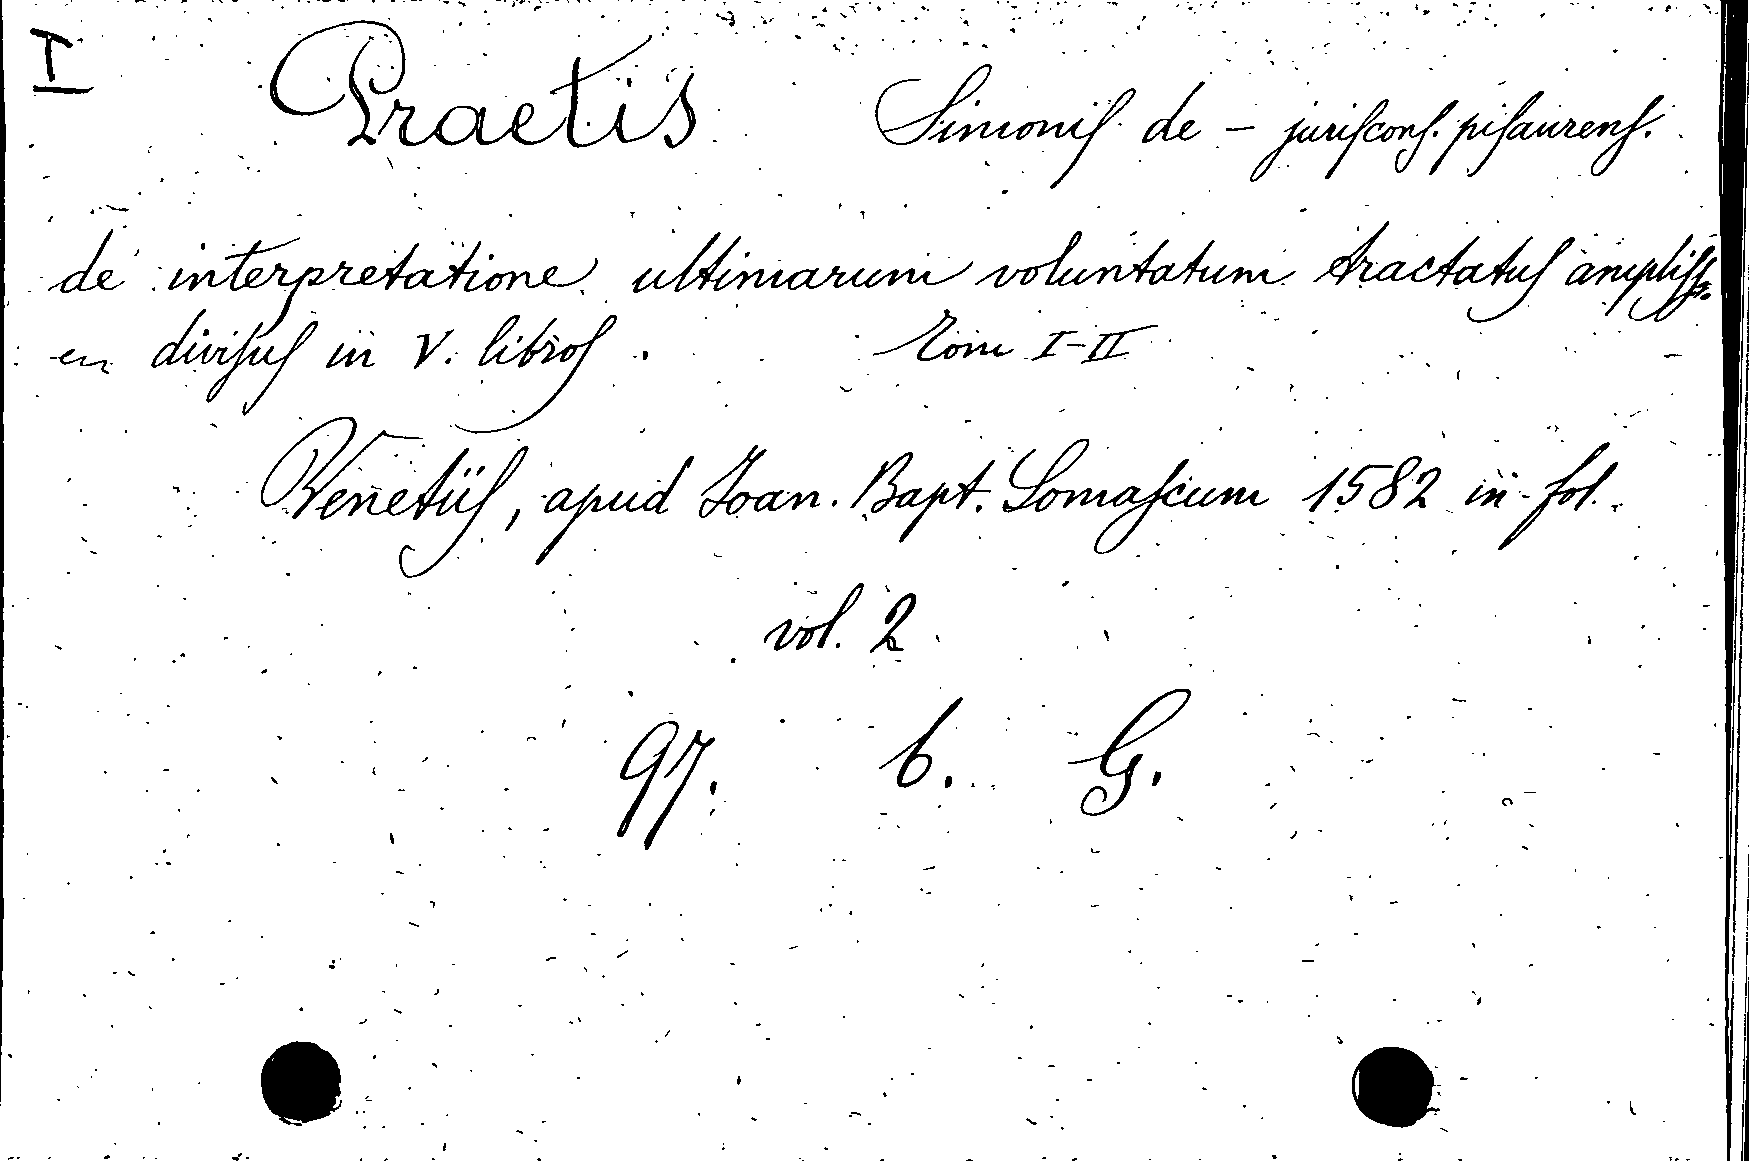 I
Praetis Simonis de - juriscons. pisaurens.
de interpretatione ultimarum voluntatum tractatus ampliss.
en divisus in V. libros. Tom I-II
Venetiis, apud Joan. Bapt. Somascum 1582 in fol.
vol. 2
97. b. G.